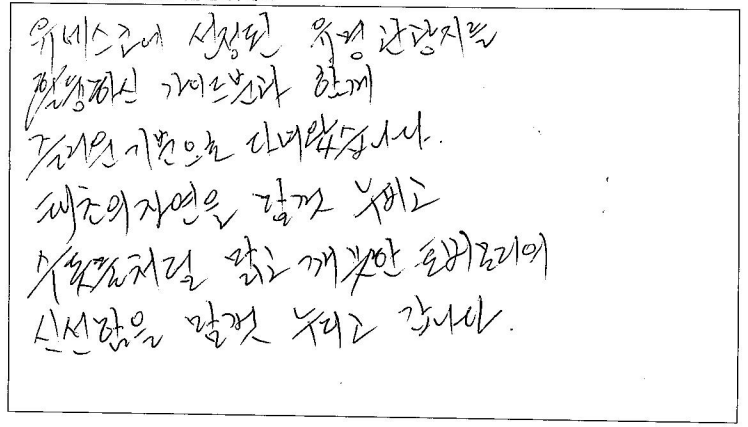 유네스코에 선정된 유명 관광지를
친절하신 가이드분과 함께
즐거운 기분으로 다녀왔습니다.
태초의 자연을 맘껏 누비고
처럼 맑고 깨끗한
신선함을 맘껏 누리고 갑니다.